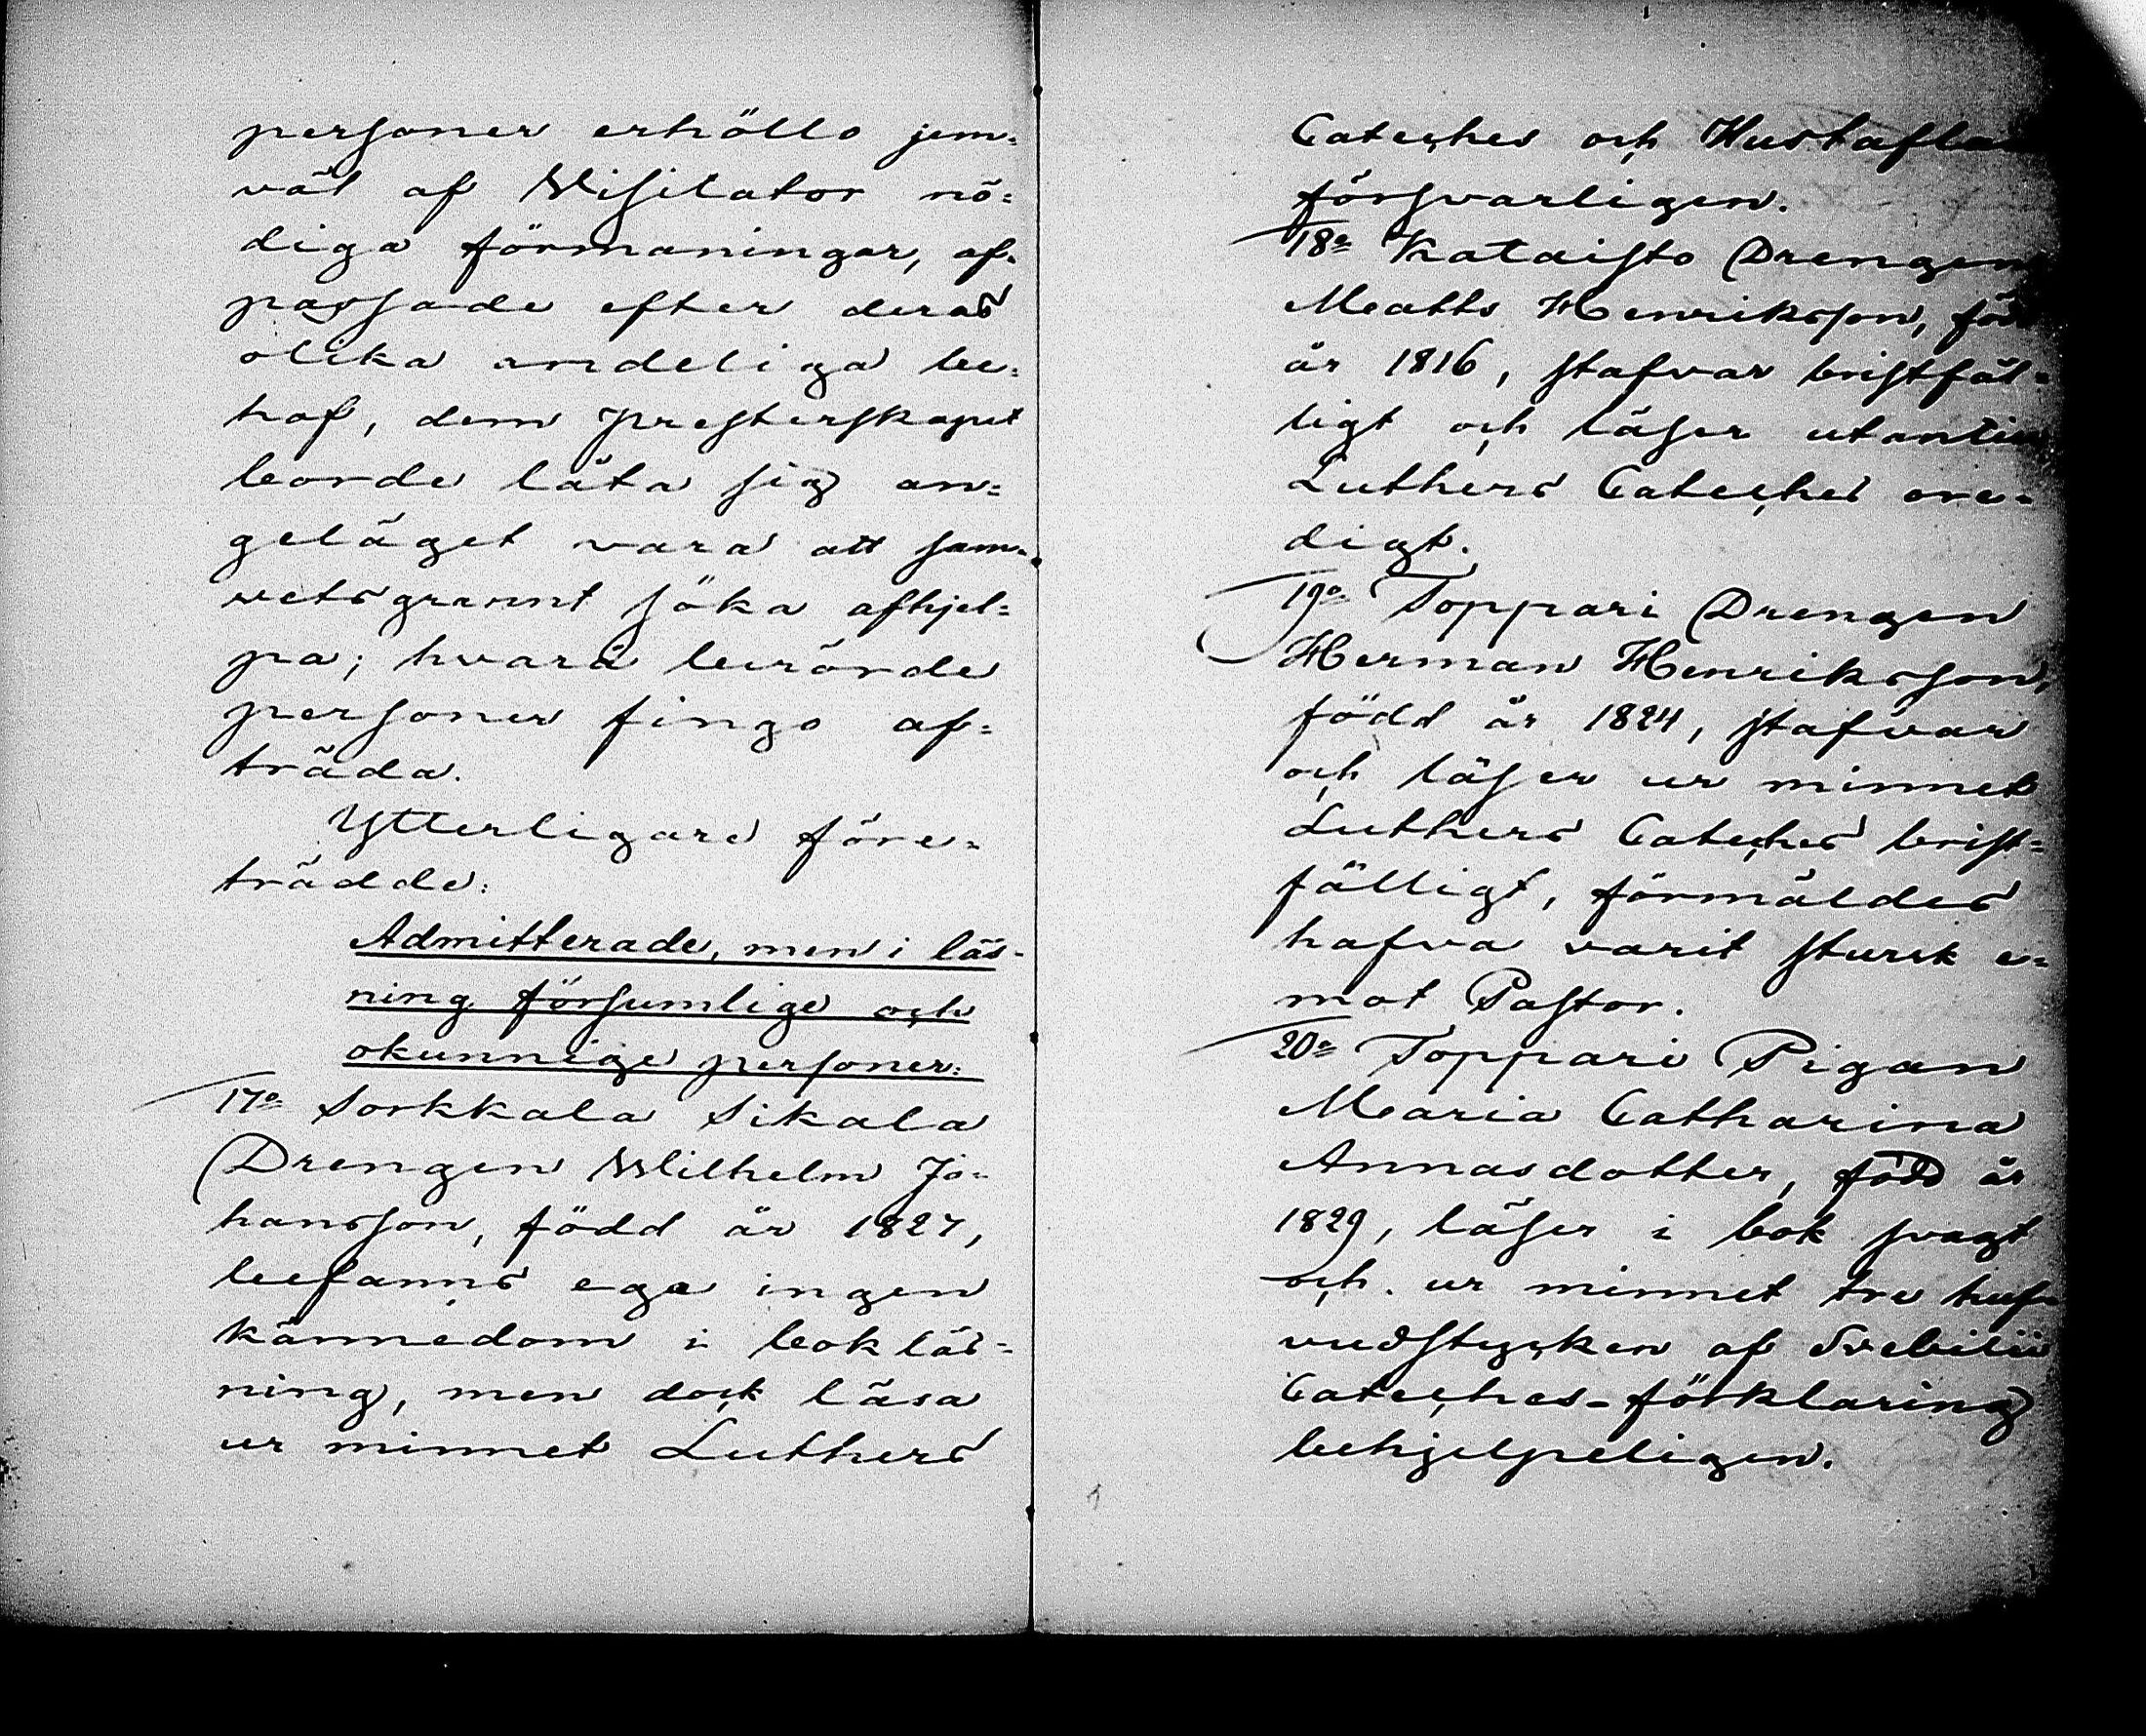 personer erhöllo jem=
väl af Visitator nö=
diga förmaningar, af=
passade efter deras
olika andeliga be=
hof, dem Presterskapet
borde låta sig an=
geläget vara att sam=
vetsgrannt söka afhjel=
pa; hvarå berörde
personer fingo af=
träda.
Ytterligare före=
trädde:
Admitterade, men i läs-
ning försumlige och
okunnige personer:
17o Sorkkala Sikala
Drengen Wilhelm Jo=
hansson, född år 1827,
befanns ega ingen
kännedom i bokläs=
ning, men dock läsa
ur minnet Luthers
Cateches och Hustaflan
försvarligen.
18o Kataisto Drengen
Matts Henriksson, född
år 1816, stafvar bristfäl=
ligt och läser utantill
Luthers Cateches ore=
digt.
19o Toppari Drengen
Herman Henriksson,
född år 1824, stafvar
och läser ur minnet
Luthers Cateches brist=
fälligt, förmäldes
hafva varit sturik e=
mot Pastor.
20o Toppari Pigan
Maria Catharina
Annasdotter, född år
1829, läser i bok svagt
och ur minnet tre huf=
vudstycken af Svebilii
Cateches-förklaring
behjelpeligen.